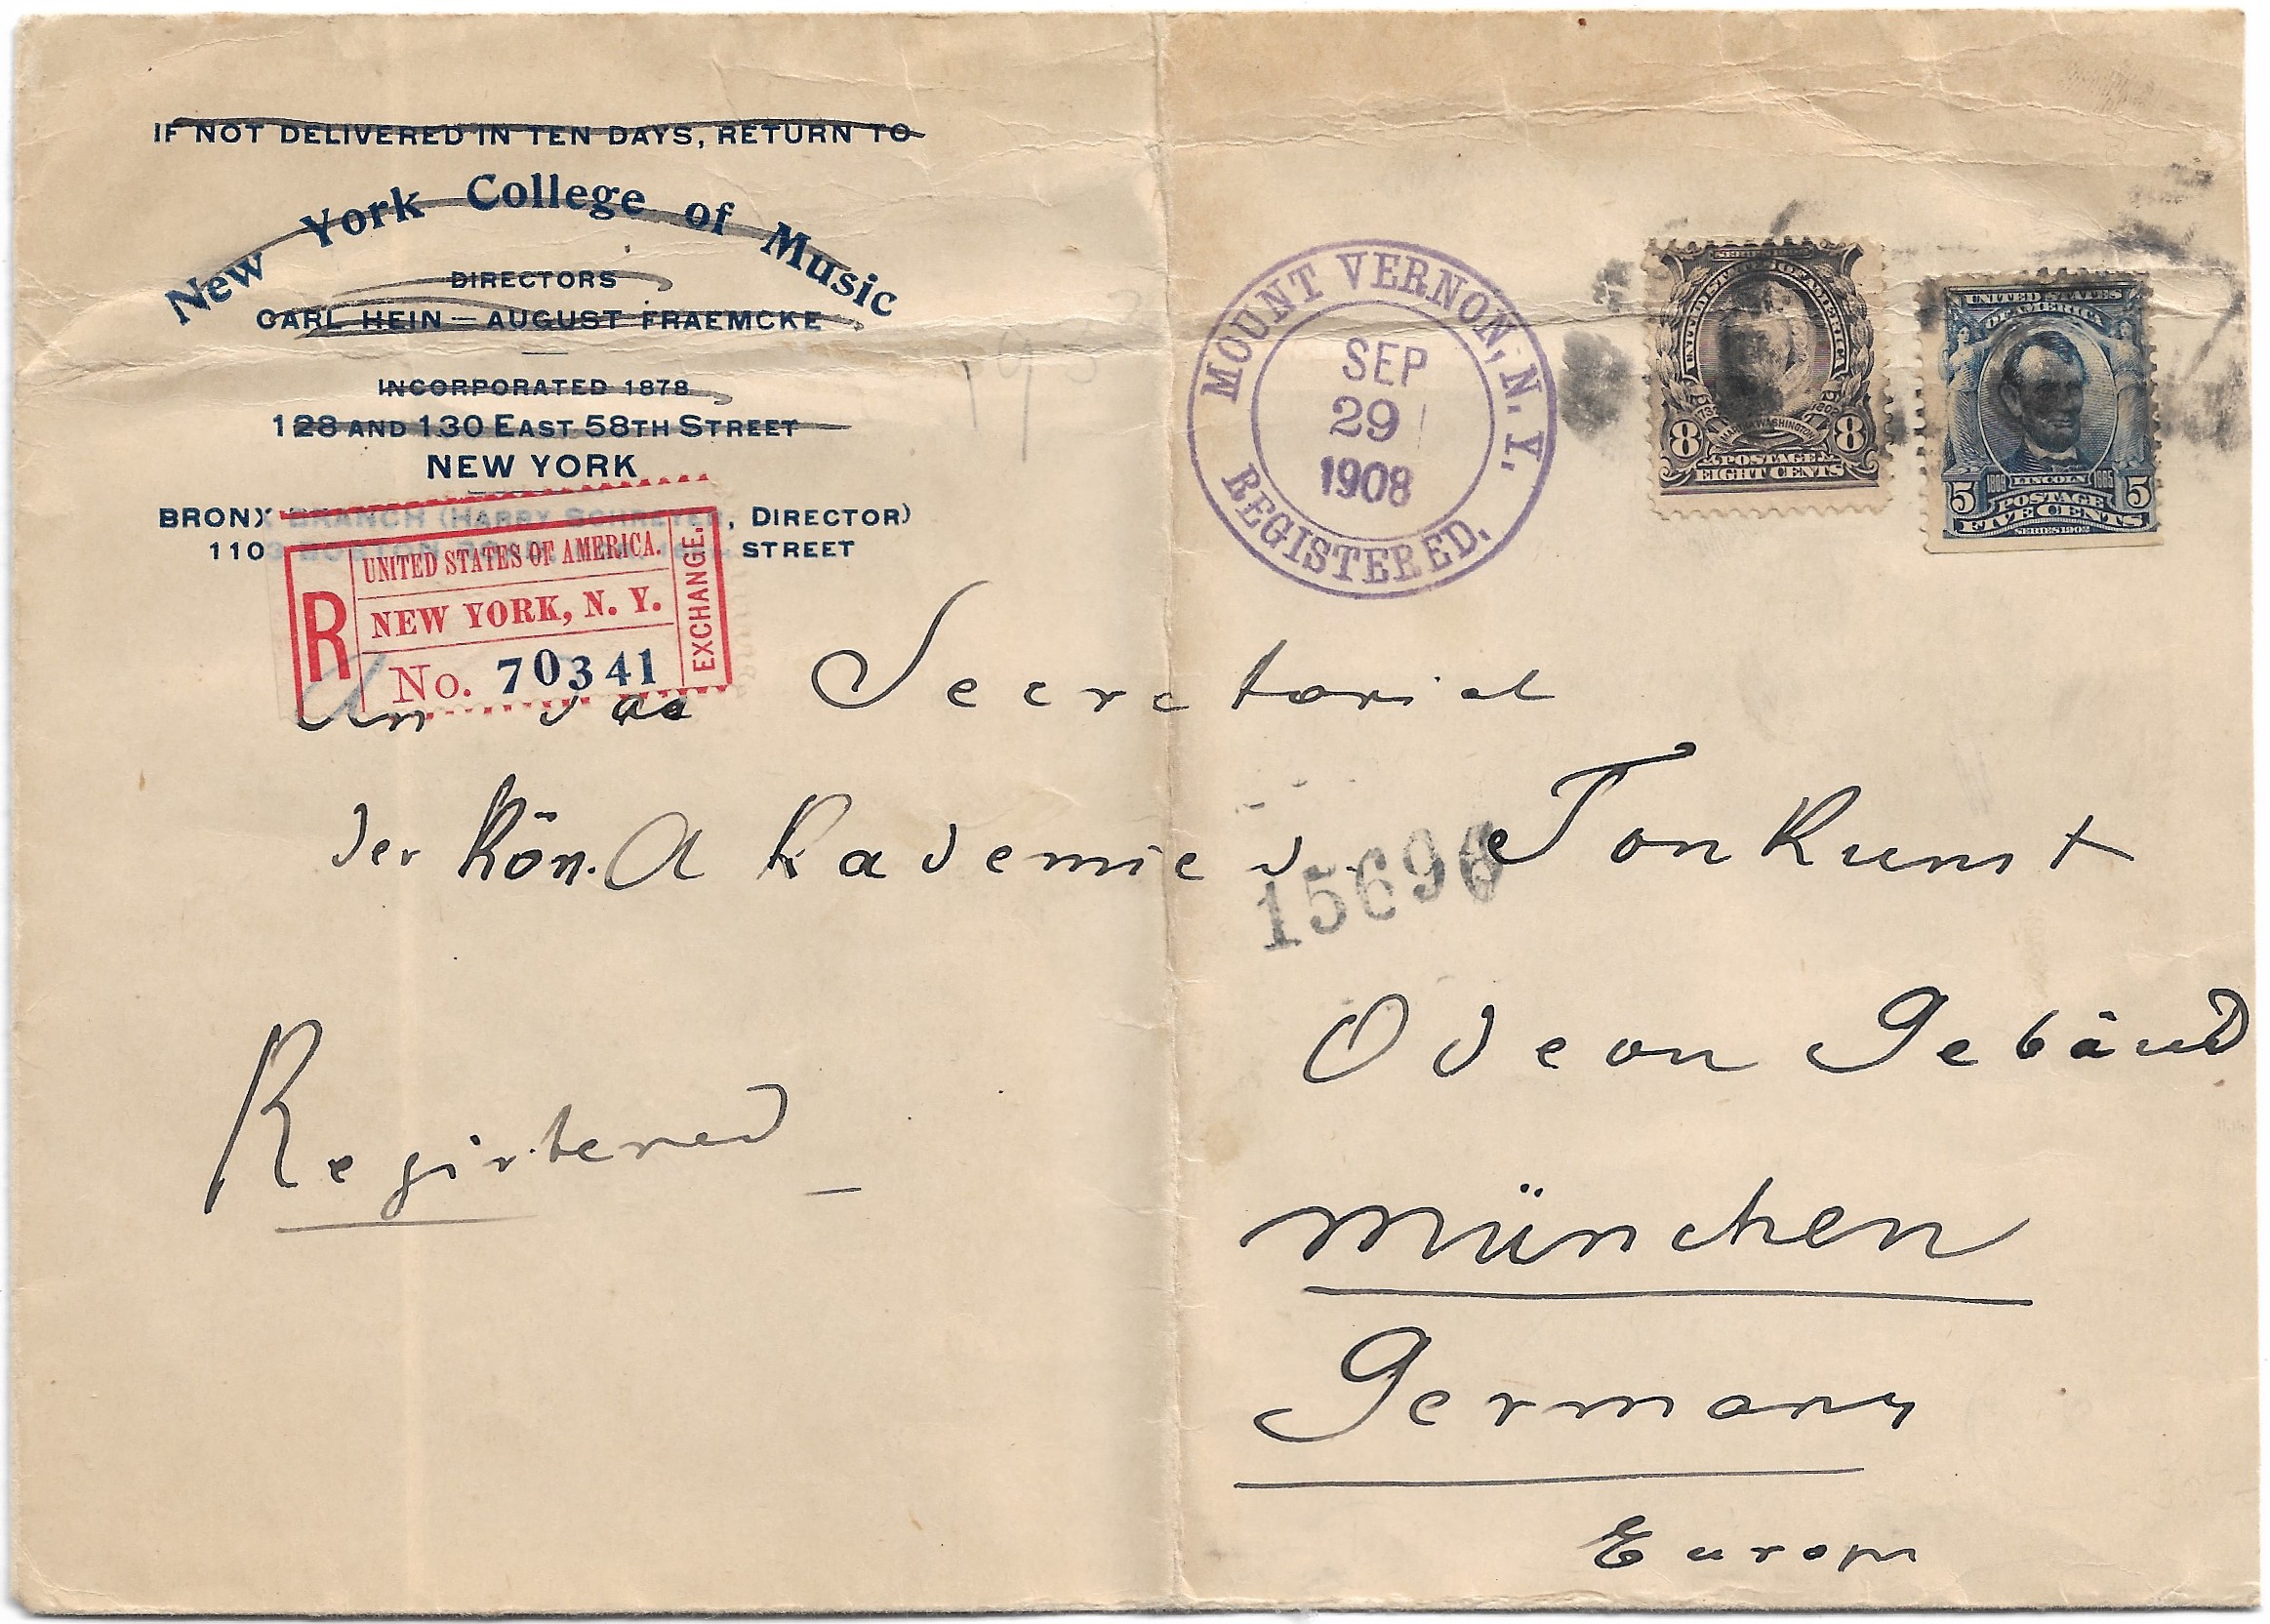 IF NOT DELIVERED IN TEN DAYS, RETURN TO
New York College of Music
DIRECTORS
CARL HEIN — AUGUST FRAEMCKE
INCORPORATED 1878
128 AND 130 EAST 58TH STREET
NEW YORK
BRONX BRANCH (HARRY SCHREYER, DIRECTOR)
110 STREET
R
UNITED STATES OF AMERICA.
NEW YORK, N. Y.
No. 70341
EXCHANGE.
MOUNT VERNON, N. Y.
SEP
29
1908
REGISTERED.
SERIES 1902
UNITED STATES OF AMERICA
1732 MARTHA WASHINGTON 1802
8 POSTAGE 8
EIGHT CENTS
UNITED STATES
OF AMERICA
1809 LINCOLN 1865
5 POSTAGE 5
FIVE CENTS
SERIES 1902
An das Secretariat
der Kön. Akademie d. Tonkunst
15696
Odeon Gebäud
Registered
München
Germany
Europa